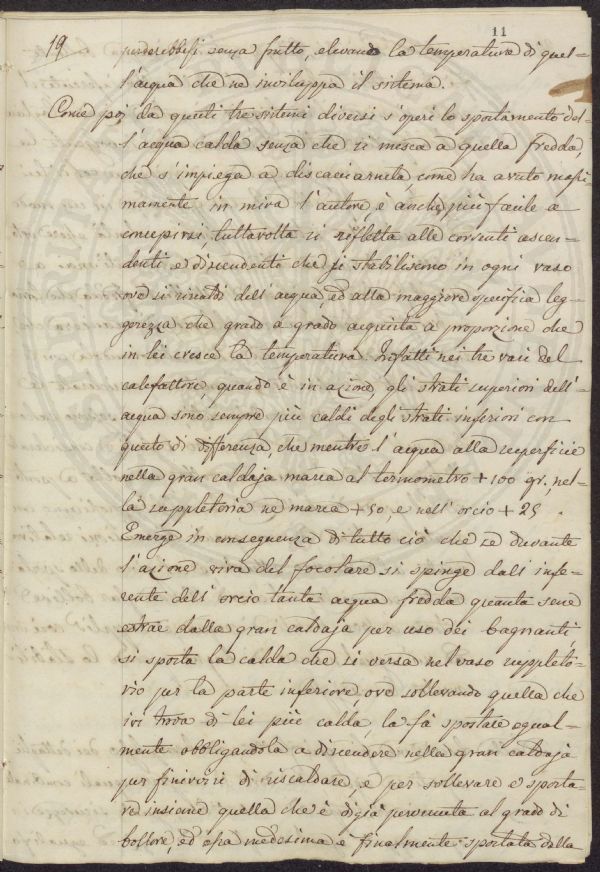 11
19 perderebbesi senza frutto, elevando la temperatura di quel-
l'acqua che ne inviluppa il sistema.
Come poi da questi tre sistemi diversi s'operi lo spostamento del-
l'acqua calda senza che si mesca a quella fredda,
che s'impiega a discacciarnela, come ha avuto massi-
mamente in mira l'autore, è anche più facile a
concepirsi, tuttavolta si rifletta alle correnti ascen-
denti, e discendenti che si stabiliscono in ogni vaso
ove si riscaldi dell'acqua, ed alla maggiore specifica leg-
gerezza che grado a grado acquista a proporzione che
in lei cresce la temperatura. Infatti nei tre vasi del
calefattore, quando è in azione, gli strati superiori dell'-
acqua sono sempre più caldi degli strati inferiori con
questo di differenza, che mentre l'acqua alla superficie
nella gran caldaja marca al termometro + 100 gr., nel-
la suppletoria ne marca + 50, e nell'orcio + 25.
Emerge in conseguenza di tutto ciò che se durante
l'azione viva del focolare si spinge dall'infe-
rente dell'orcio tanta acqua fredda quanta sene
estrae dalla gran caldaja per uso dei bagnanti,
si sposta la calda che si versa nel vaso suppleto-
rio per la parte inferiore, ove sollevando quella che
ivi trova di lei più calda, la fà spostare egual-
mente obbligandola a discendere nella gran caldaja
per finirvisi di riscaldare, e per sollevare e sposta-
re insieme quella che è digià pervenuta al grado di
bollore, ed essa medesima è finalmente spostata dalla